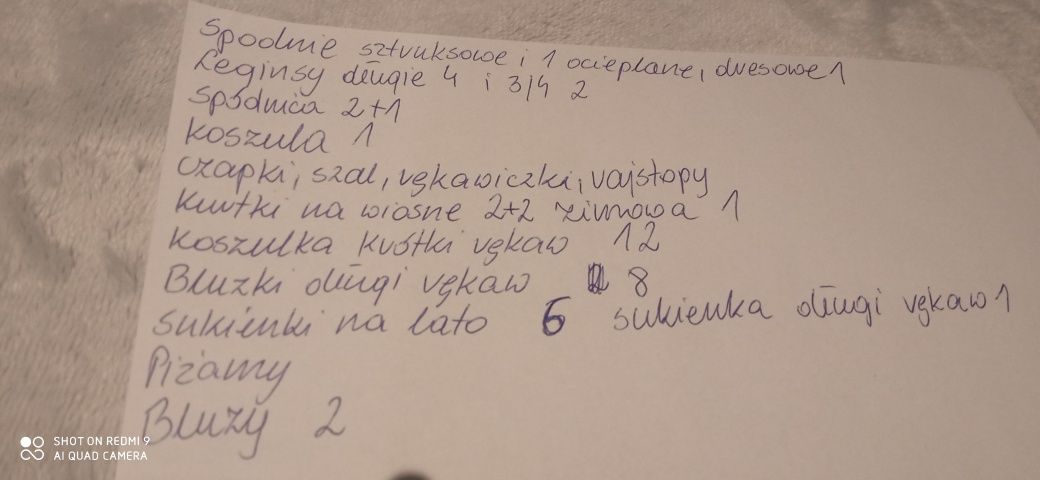 Spodnie sztruksowe i 1 ocieplane, dresowe 1
Leginsy długie 4 i 3/4 2
Spódnica 2+1
Koszula 1
Czapki, szal, rękawiczki, rajstopy
Kurtki na wiosne 2+2 zimowa 1
Koszulka krótki rękaw 12
Bluzki długi rękaw 8
Sukienki na lato 6 sukienka długi rękaw 1
Piżamy
Bluzy 2
SHOT ON REDMI 9
AI QUAD CAMERA